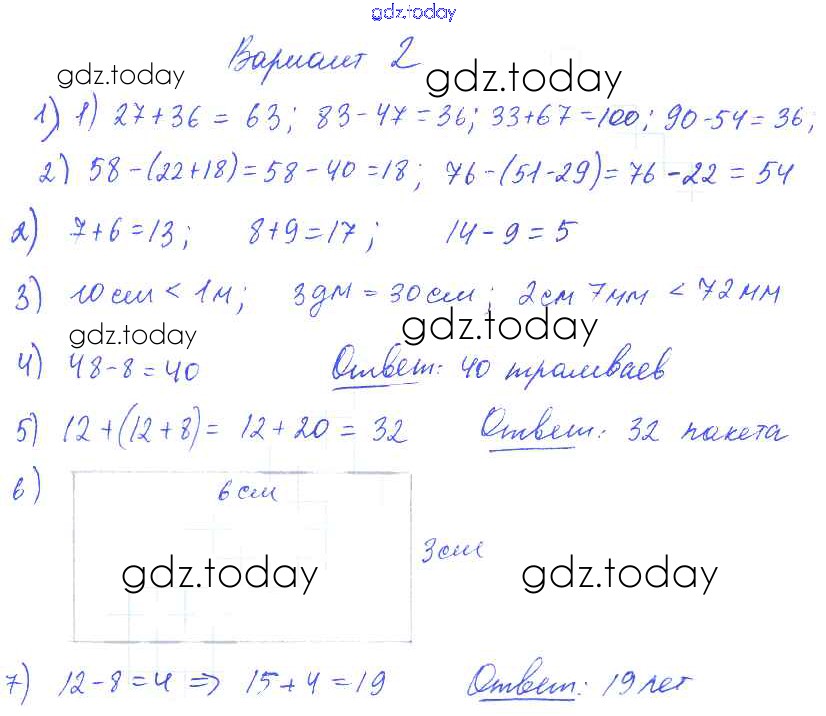 gdz.today
Вариант 2
gdz.today gdz.today
1) 1) 27+36 = 63; 83-47=36; 33+67=100; 90-54=36;
2) 58-(22+18)=58-40=18; 76-(51-29)=76-22=54
2) 7+6=13; 8+9=17; 14-9=5
3) 10см < 1м; 3дм = 30см; 2см 7мм < 72мм
gdz.today gdz.today
4) 48-8=40 Ответ: 40 трамваев
5) 12+(12+8)= 12+20=32 Ответ: 32 пакета
6) 6см
3см
gdz.today gdz.today
7) 12-8=4 => 15+4=19 Ответ: 19 лет